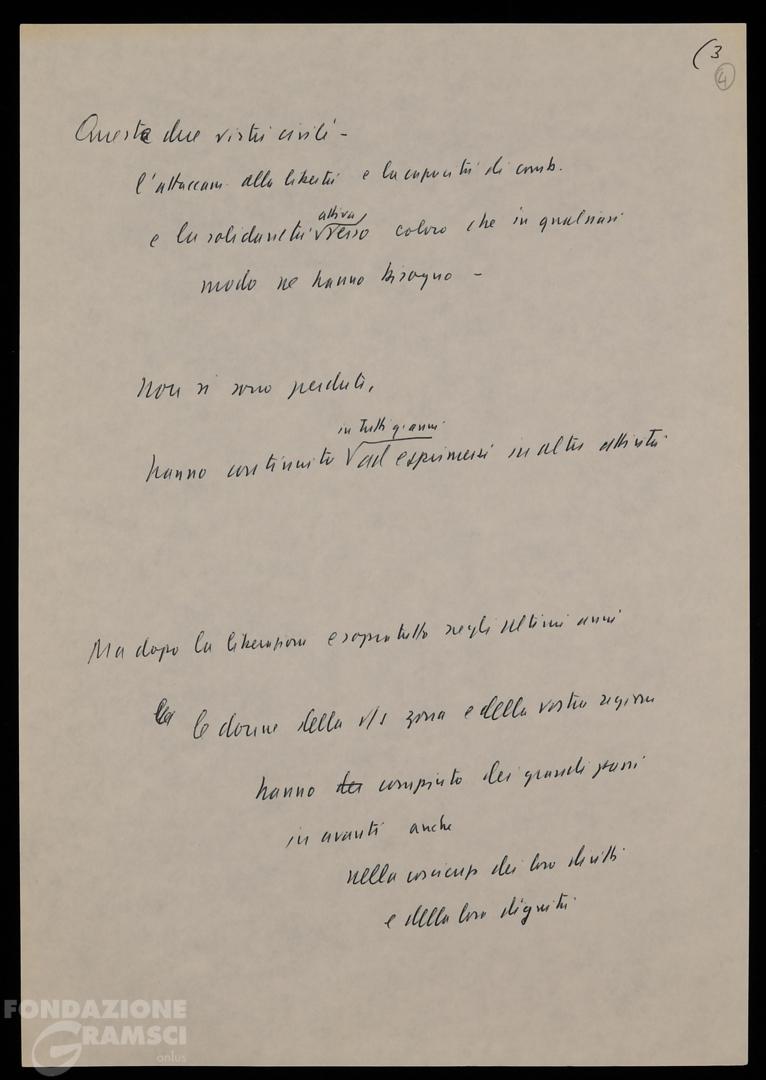 (3
4
Queste due virtù civili -
l'attaccam. alla libertà e la capacità di comb.
attiva
e la solidarietà verso coloro che in qualsiasi
modo ne hanno bisogno -
non si sono perdute,
in tutti gli anni
hanno continuato ad esprimersi in altre attività
Ma dopo la liberazione e soprattutto negli ultimi anni
le donne della v/s zona e della vostra regione
hanno compiuto dei grandi passi
in avanti anche
nella coscienza dei loro diritti
e della loro dignità
FONDAZIONE
GRAMSCI
onlus